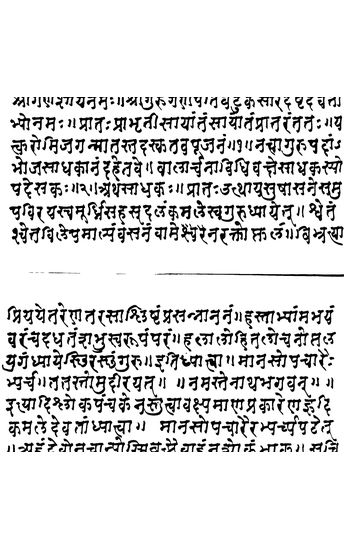 श्रीगणेशायनमः॥श्रीगुरुगणपतिबटुकसारदेष्टदेवता
भ्योनमः॥प्रातःप्राभृतीसायांतंसायांतंप्रातरंततः॥य
त्करोमिजगन्मातस्तदस्कतवपूजनं॥१॥नत्वागुरुपदां
भोजसाधकानंदहेतवे॥वालार्चनविधिवक्षेसाधकस्यो
पदेसकः॥२॥अथसाधकः॥प्रातःउत्थायसुषासनेसमु
पविश्यस्वमूर्ध्निसहस्रदलकमलेस्वगुरुध्यायेत्॥श्वेतं
श्वेतविलेपमाल्यंवसनंवामेश्वरेनरक्तोत्पलं॥बिभ्रत्या
प्रिययेतरेणतरसाश्लिष्टंप्रसन्नाननं॥हस्ताभ्यामभयं
वरंचदधतंशंभुस्वरूपंपरं॥हलालोहितलोचनोत्पल
युगंध्यायेस्छिरस्छंगुरुं॥इतिध्यात्वा॥मानसोपचारैः
भ्यर्च॥ततस्तामुदीरयेत्॥॥नमस्तेनाथभगवन्॥॥
इत्यादिश्लोकपंचकेनस्तुत्वावक्ष्यमाणप्रकारेणहृदि
कमलेदेवतांध्यात्वा॥मानसोपचारैरभ्यर्च्यपठेत्